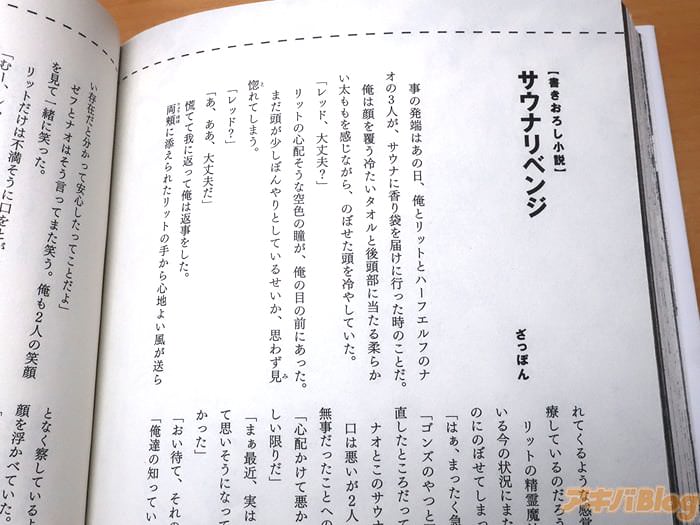 【書きおろし小説】
サウナリベンジ
ざっぽん
事の発端はあの日、俺とリットとハーフエルフのナ
オの3人が、サウナに香り袋を届けに行った時のことだ。
俺は顔を覆う冷たいタオルと後頭部に当たる柔らか
い太ももを感じながら、のぼせた頭を冷やしていた。
「レッド、大丈夫?」
リットの心配そうな空色の瞳が、俺の目の前にあった。
まだ頭が少しぼんやりとしているせいか、思わず見
惚れてしまう。
「レッド?」
「あ、ああ、大丈夫だ」
慌てて我に返って俺は返事をした。
両頬に添えられたリットの手から心地よい風が送ら
れてくるような感覚
療しているのだろう
リットの精霊魔
いる今の状況にまた
のにのぼせてしま
「はぁ、まったく急
「ゴンズのやつと
直したところだって
ナオとこのサウナ
口は悪いが2人
無事だったことへの
「心配かけて悪か
しい限りだ」
「まぁ最近、実は
て思いそうになっ
かった」
「おい待て、それの
「俺達の知ってい
い存在だと分かって安心したってことだよ」
ゼフとナオはそう言ってまた笑う。俺も2人の笑顔
を見て一緒に笑った。
リットだけは不満そうに口をとが
「むー、
となく察しているよ
顔を浮かべていた。
アキバBlog